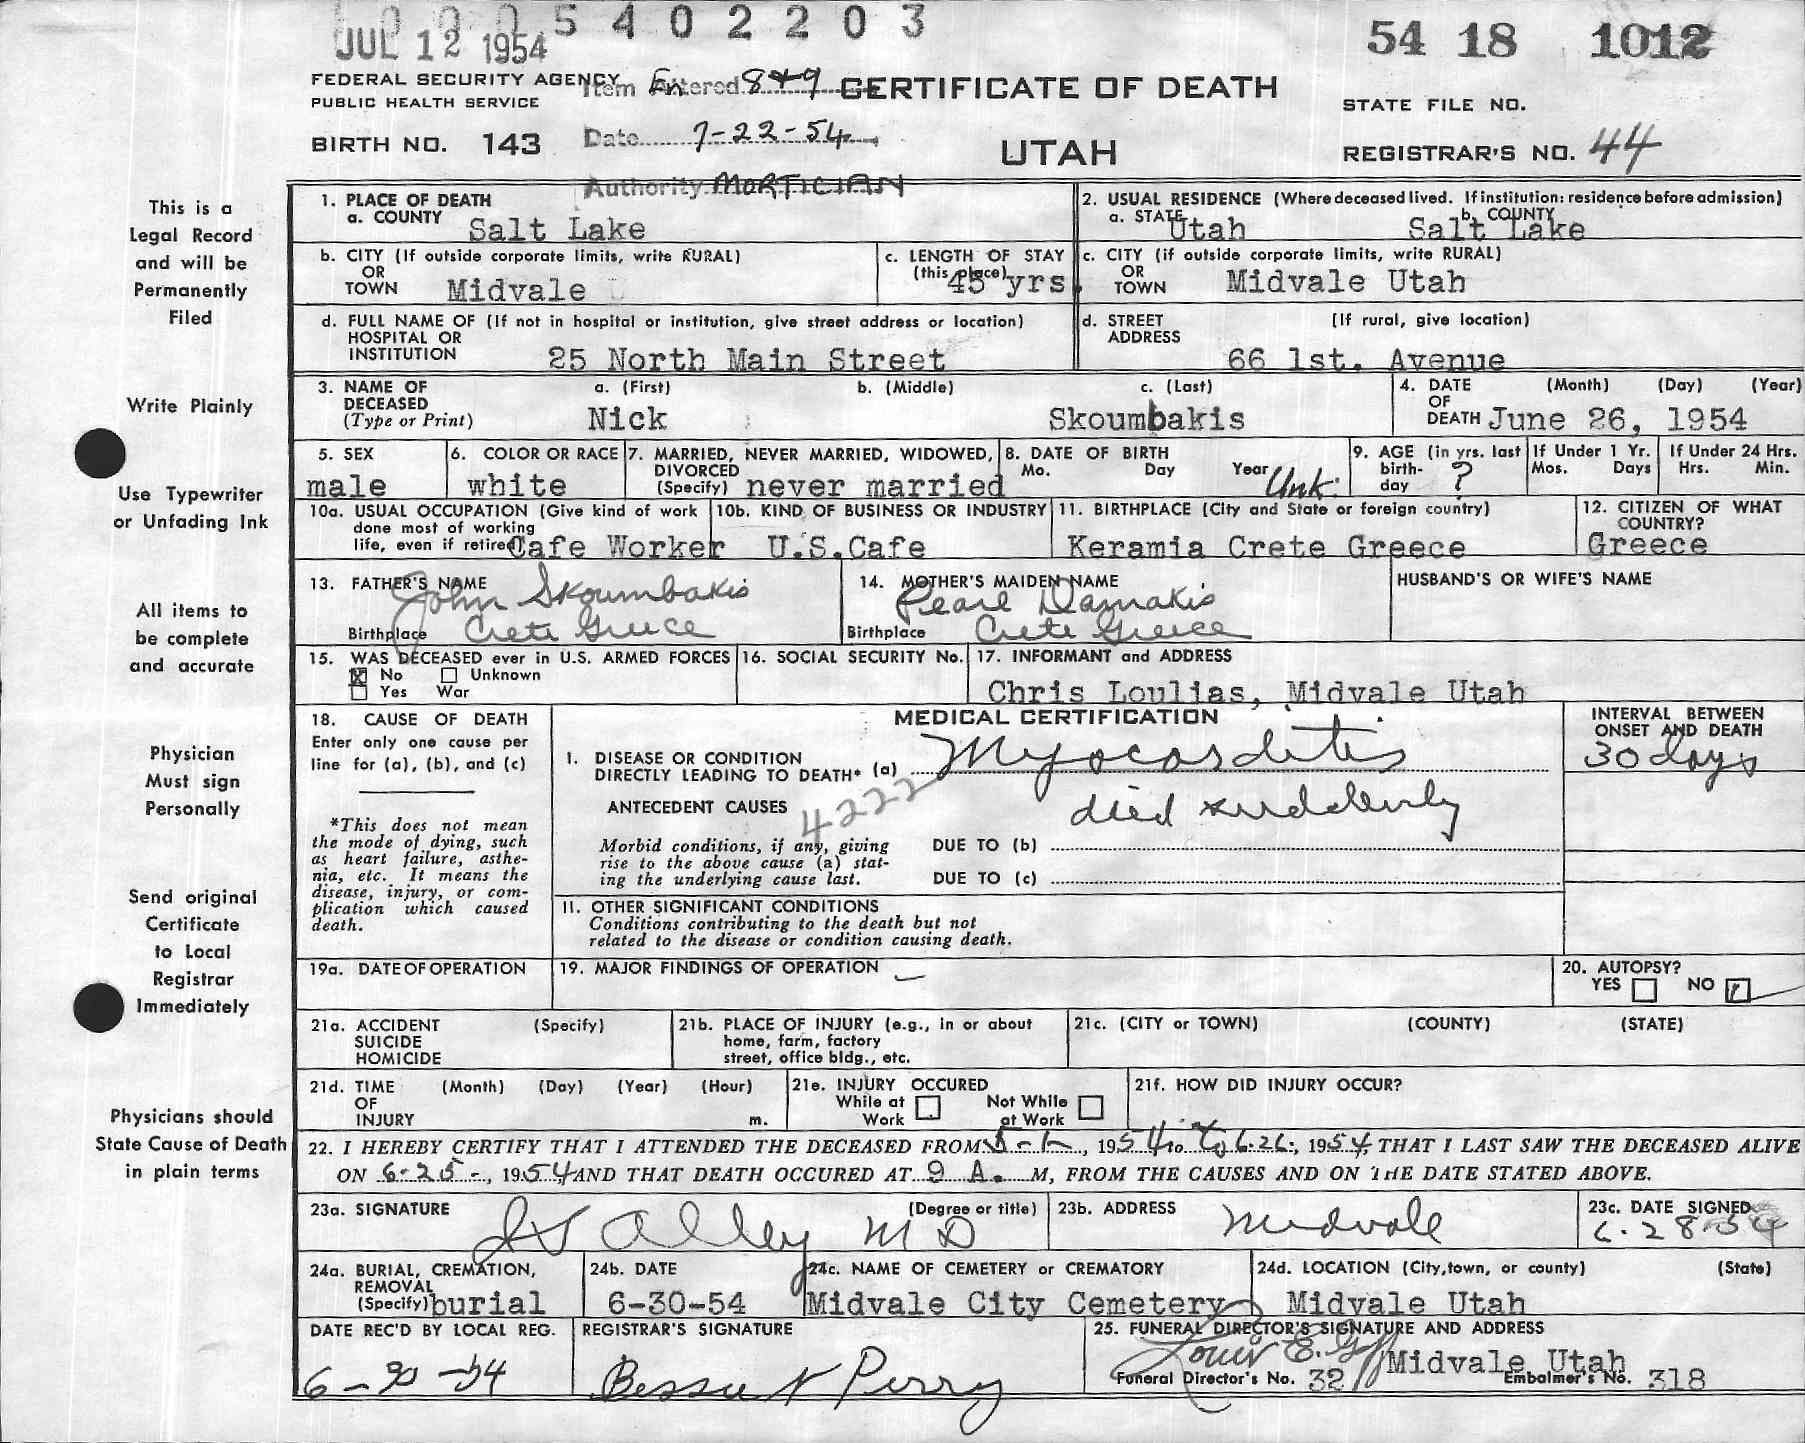 0005402203
JUL 12 1954
54 18 1012
FEDERAL SECURITY AGENCY
PUBLIC HEALTH SERVICE
Item Entered 8+9
CERTIFICATE OF DEATH
STATE FILE NO.
BIRTH NO. 143
Date 7-22-54
UTAH
REGISTRAR'S NO. 44
Authority MORTICIAN
This is a
Legal Record
and will be
Permanently
Filed
Write Plainly
Use Typewriter
or Unfading Ink
All items to
be complete
and accurate
Physician
Must sign
Personally
Send original
Certificate
to Local
Registrar
Immediately
Physicians should
State Cause of Death
in plain terms
1. PLACE OF DEATH
a. COUNTY
Salt Lake
2. USUAL RESIDENCE (Where deceased lived. If institution: residence before admission)
a. STATE Utah b. COUNTY Salt Lake
b. CITY (If outside corporate limits, write RURAL)
OR
TOWN Midvale
c. LENGTH OF STAY
(this place) 45 yrs
c. CITY (if outside corporate limits, write RURAL)
OR
TOWN Midvale Utah
d. FULL NAME OF (If not in hospital or institution, give street address or location)
HOSPITAL OR
INSTITUTION 25 North Main Street
d. STREET (If rural, give location)
ADDRESS 66 1st. Avenue
3. NAME OF DECEASED
(Type or Print)
a. (First) b. (Middle) c. (Last)
Nick Skoumbakis
4. DATE OF DEATH (Month) (Day) (Year)
June 26, 1954
5. SEX
male
6. COLOR OR RACE
white
7. MARRIED, NEVER MARRIED, WIDOWED,
DIVORCED
(Specify) never married
8. DATE OF BIRTH
Mo. Day Year Unk.
9. AGE (in yrs. last
birth-
day ?
If Under 1 Yr.
Mos. Days
If Under 24 Hrs.
Hrs. Min.
10a. USUAL OCCUPATION (Give kind of work
done most of working
life, even if retired Cafe Worker
10b. KIND OF BUSINESS OR INDUSTRY
U.S.Cafe
11. BIRTHPLACE (City and State or foreign country)
Keramia Crete Greece
12. CITIZEN OF WHAT
COUNTRY?
Greece
13. FATHER'S NAME
John Skoumbakis
Birthplace Crete Greece
14. MOTHER'S MAIDEN NAME
Pearl
Birthplace Crete Greece
HUSBAND'S OR WIFE'S NAME
15. WAS DECEASED ever in U.S. ARMED FORCES
X No Unknown
Yes War
16. SOCIAL SECURITY No.
17. INFORMANT and ADDRESS
Chris Loulias, Midvale Utah
18. CAUSE OF DEATH
Enter only one cause per
line for (a), (b), and (c)
*This does not mean
the mode of dying, such
as heart failure, asthe-
nia, etc. It means the
disease, injury, or com-
plication which caused
death.
MEDICAL CERTIFICATION
INTERVAL BETWEEN
ONSET AND DEATH
I. DISEASE OR CONDITION
DIRECTLY LEADING TO DEATH* (a) Myocarditis
30 days
4222
ANTECEDENT CAUSES
died suddenly
Morbid conditions, if any, giving
rise to the above cause (a) stat-
ing the underlying cause last.
DUE TO (b)
DUE TO (c)
II. OTHER SIGNIFICANT CONDITIONS
Conditions contributing to the death but not
related to the disease or condition causing death.
19a. DATE OF OPERATION
19. MAJOR FINDINGS OF OPERATION
20. AUTOPSY?
YES NO
21a. ACCIDENT (Specify)
SUICIDE
HOMICIDE
21b. PLACE OF INJURY (e.g., in or about
home, farm, factory
street, office bldg., etc.
21c. (CITY or TOWN) (COUNTY) (STATE)
21d. TIME (Month) (Day) (Year) (Hour)
OF
INJURY m.
21e. INJURY OCCURED
While at Work Not While at Work
21f. HOW DID INJURY OCCUR?
22. I HEREBY CERTIFY THAT I ATTENDED THE DECEASED FROM 5-1-, 1954 to 6-26-, 1954, THAT I LAST SAW THE DECEASED ALIVE
ON 6-25-, 1954 AND THAT DEATH OCCURED AT 9 A. M, FROM THE CAUSES AND ON THE DATE STATED ABOVE.
23a. SIGNATURE (Degree or title)
Alley MD
23b. ADDRESS
Midvale
23c. DATE SIGNED
6-28-54
24a. BURIAL, CREMATION,
REMOVAL
(Specify) burial
24b. DATE
6-30-54
24c. NAME OF CEMETERY or CREMATORY
Midvale City Cemetery
24d. LOCATION (City, town, or county) (State)
Midvale Utah
DATE REC'D BY LOCAL REG.
6-30-54
REGISTRAR'S SIGNATURE
Bessie N Perry
25. FUNERAL DIRECTOR'S SIGNATURE AND ADDRESS
Louis E. Goff Midvale Utah
Funeral Director's No. 32 Embalmer's No. 318